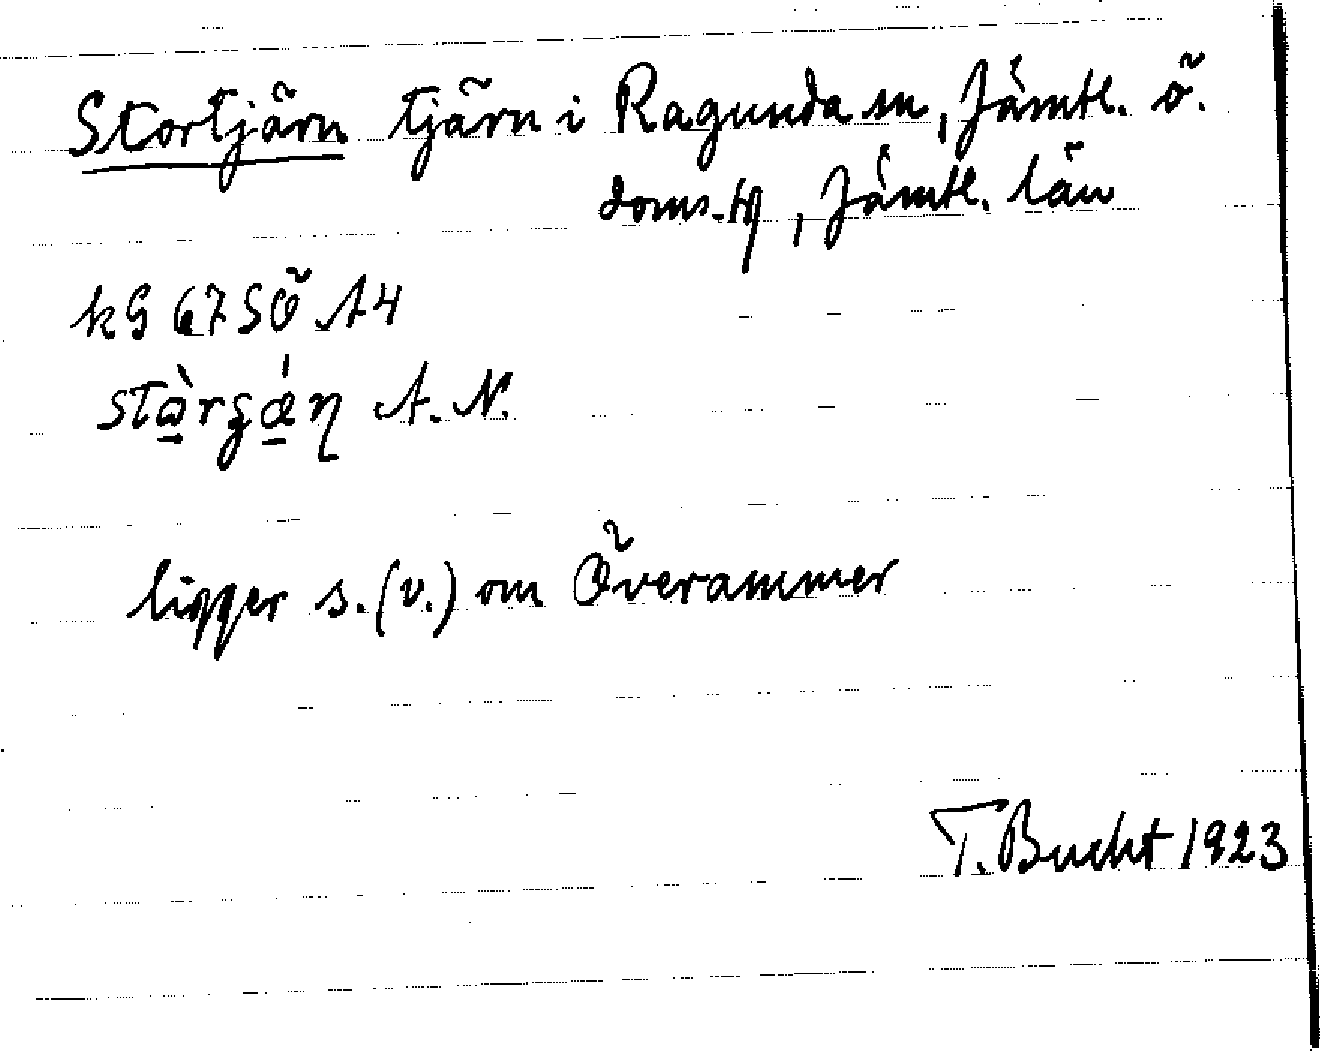 Stortjärn tjärn i Ragunda sn, Jämtl. ö.
doms. tg, Jämtl. län
kG 67 SÖ A4
stɑ̠̀rgǽ̠ƞ A. N.
ligger s. (v.) om Överammer
T. Bucht 1923